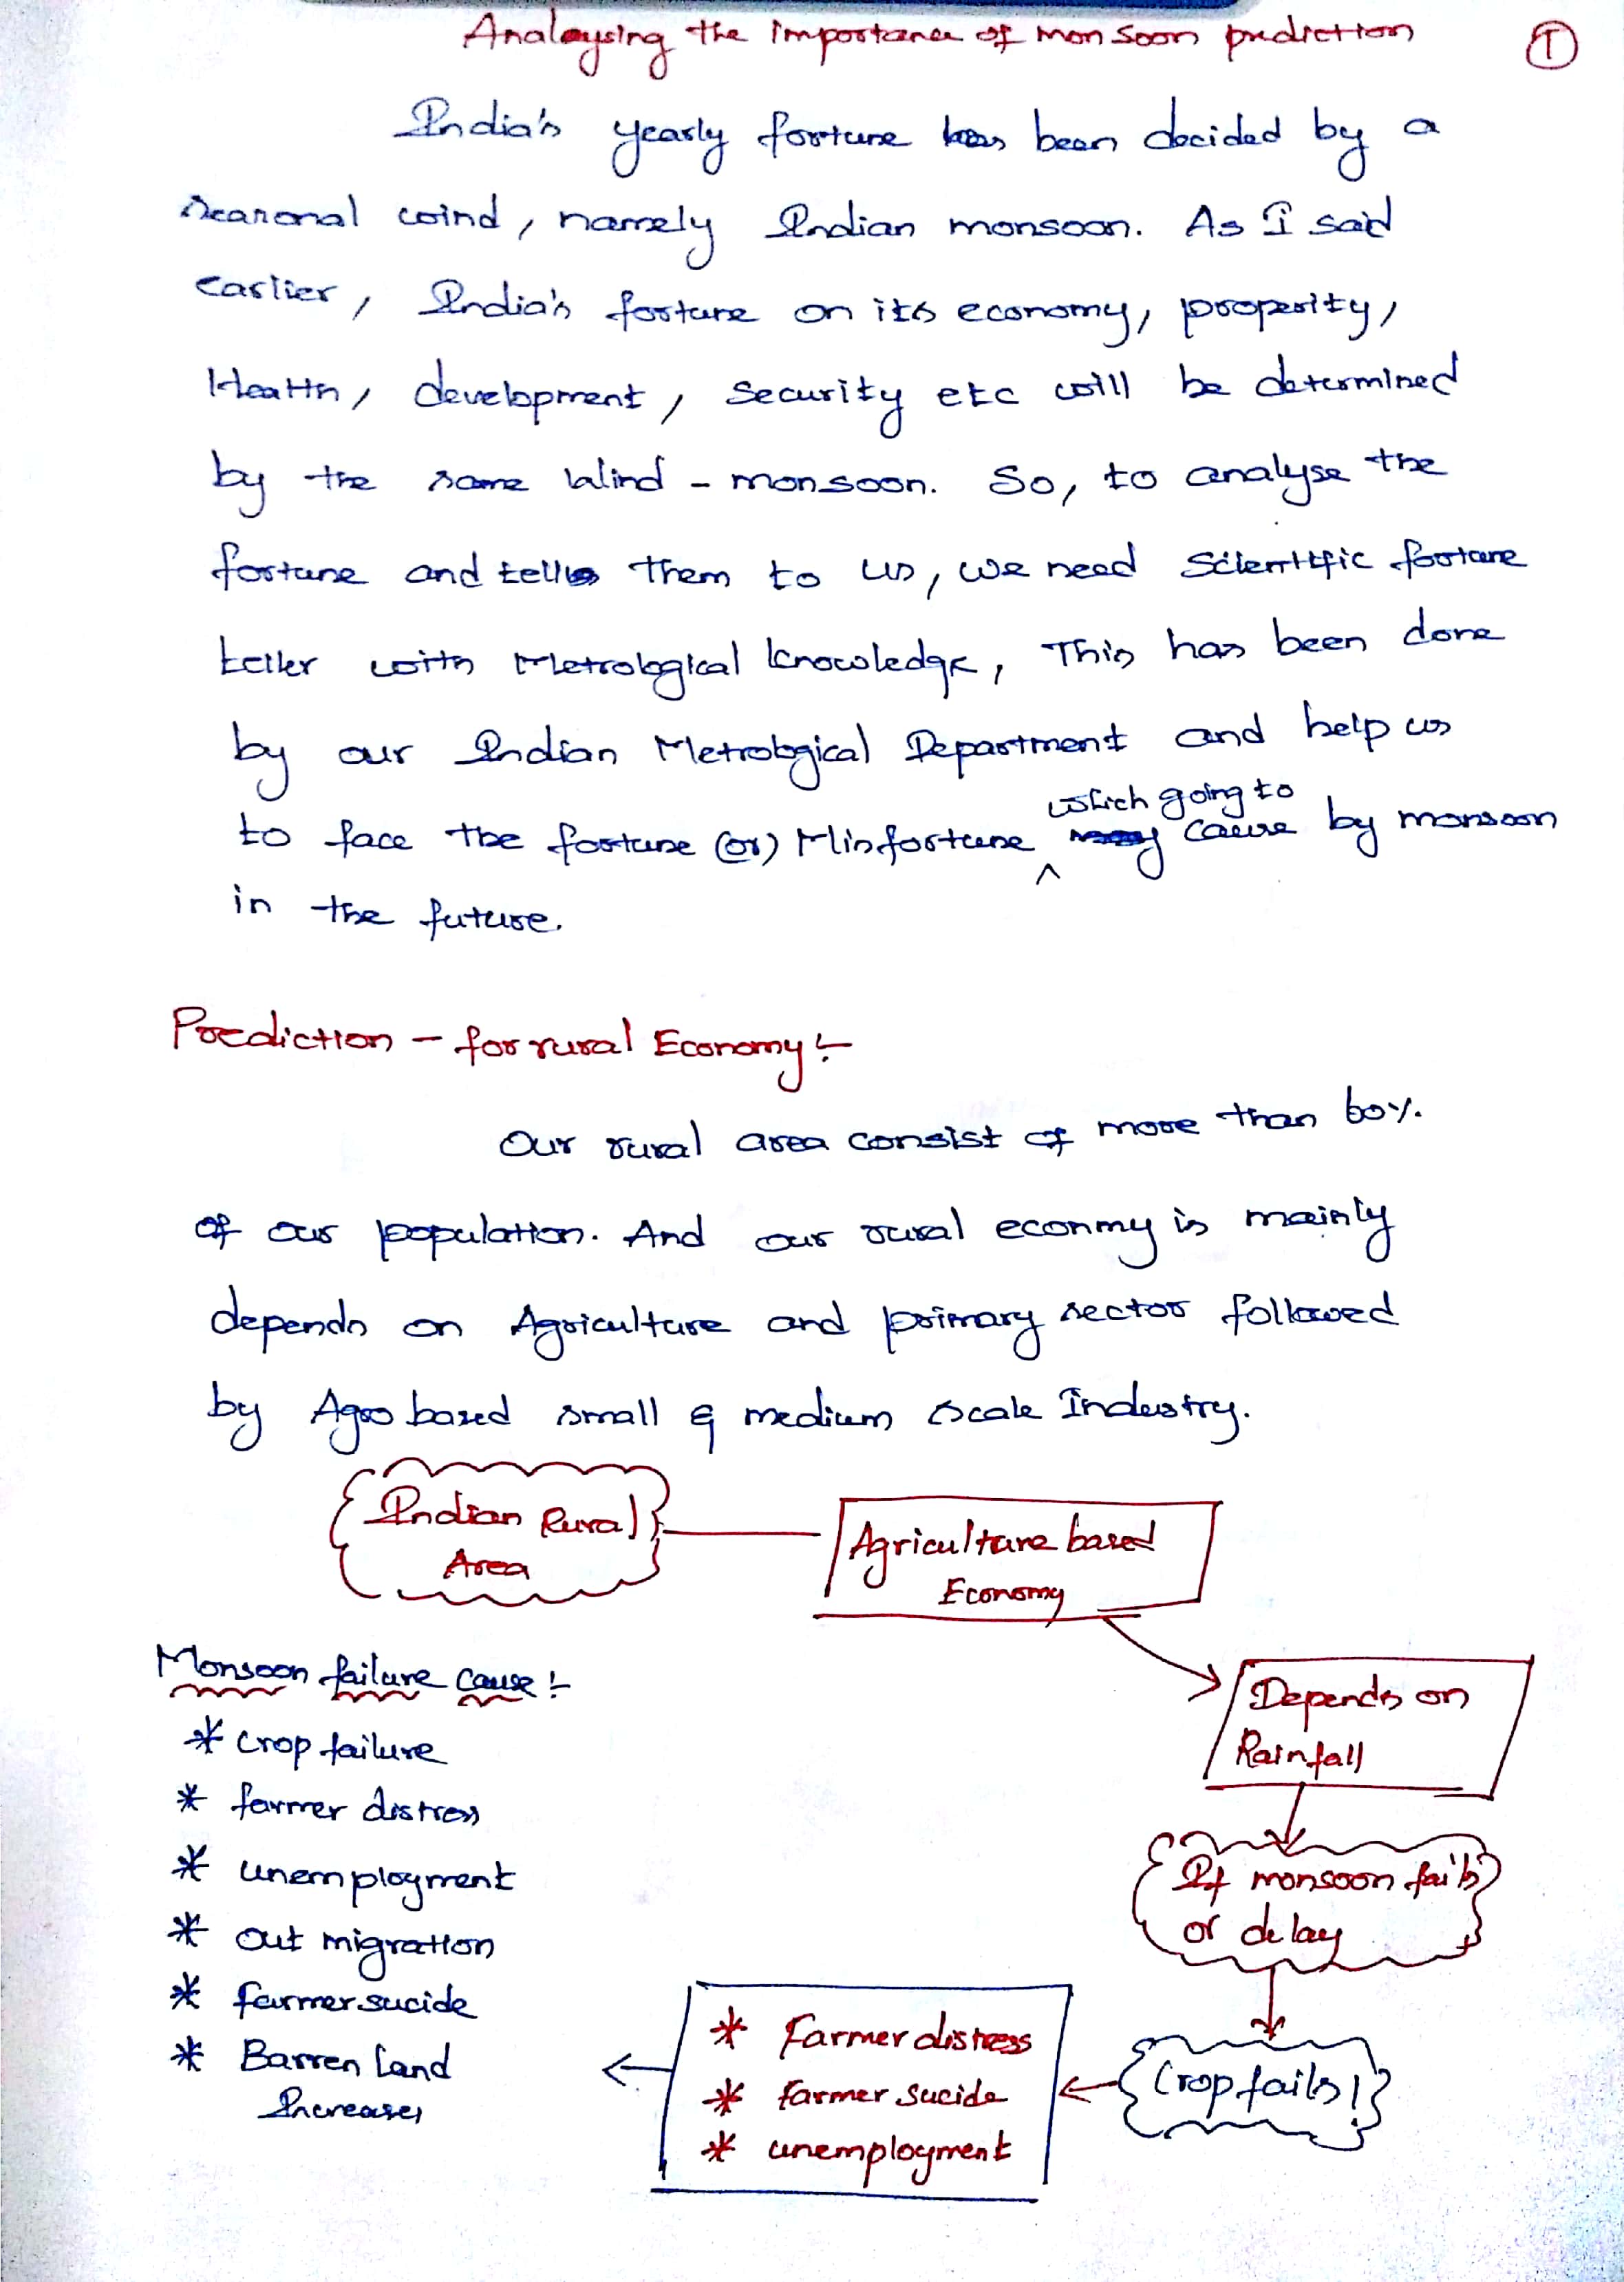 Analaysing the importance of monsoon prediction
1
India's yearly fortune has been decided by a
seasonal wind, namely Indian monsoon. As I said
earlier, India's fortune on its economy, properity,
Health, development, security etc will be determined
by the same Wind - monsoon. So, to analyse the
fortune and tells them to us, we need Scientific fortune
teller with Metrological knowledge, This has been done
by our Indian Metrological Department and help us
which going to
to face the fortune (or) Misfortune cause by monsoon
in the future.
Prediction - for rural Economy:-
Our rural area consist of more than 60%
of our population. And our rural econmy is mainly
depends on Agriculture and primary sector followed
by Agro based small & medium scale Industry.
Indian Rural
Area
Agriculture based
Economy
Depends on
Rainfall
If monsoon fails
or delay
Crop fails!
* Farmer distress
* farmer sucide
* unemployment
Monsoon failure cause:-
* Crop failure
* farmer distress
* unemployment
* Out migration
* farmer sucide
* Barren land
Increases